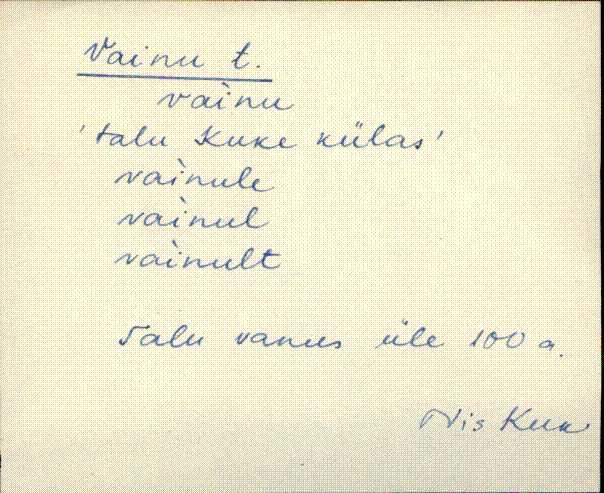 Vainu t.
vàinu
'talu Kuke külas'
vàinule
vàinul
vàinult
Talu vanus üle 100 a.
Nis Kuk